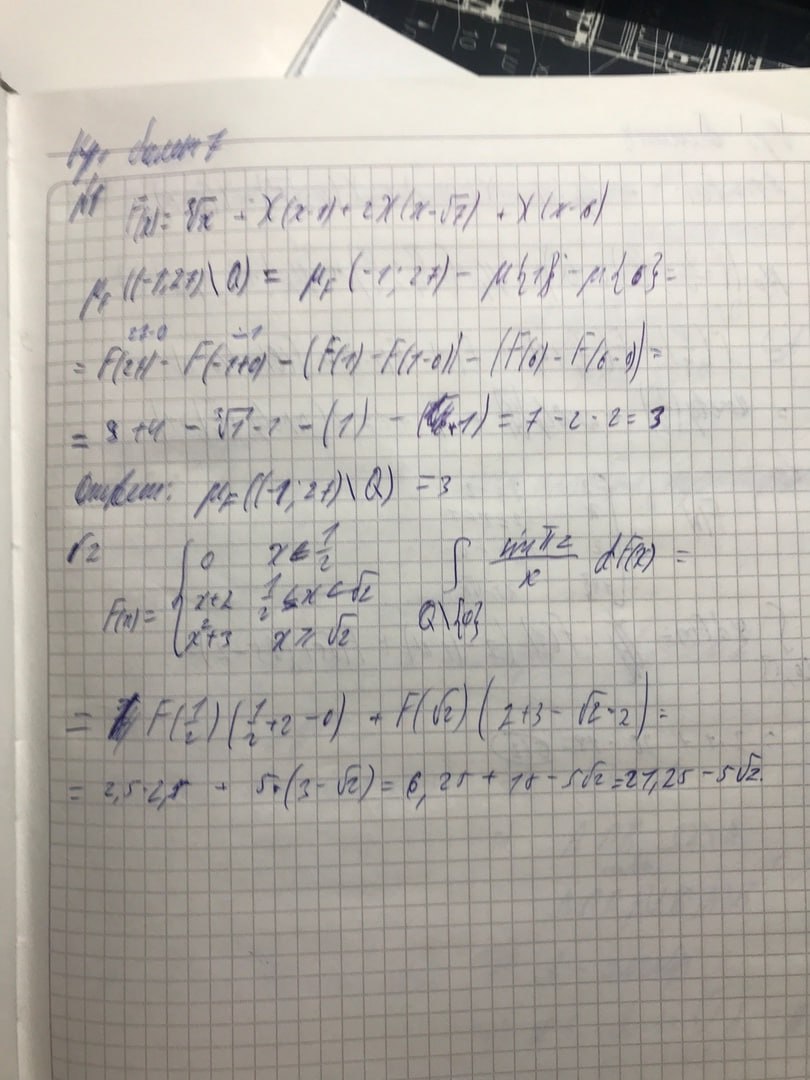 F(x) = ∛x + χ(x-1) + 2χ(x-√7) + χ(x-6)
μF ((-1;27) \ Q) = μF (-1; 27) - μ{1} - μ{6} =
27-0 -1
= F(27) - F(-1+0) - (F(1) - F(1-0)) - (F(6) - F(6-0)) =
= 3 + 4 - ∛1 - 1 - (1) - ( +1) = 7 - 2 - 2 = 3
Ответ: μF ((-1; 27) \ Q) = 3
√2
F(x) = { 0 x < 1/2
x+2 1/2 ≤ x < √2
x²+3 x ≥ √2
∫ Q\{0} sin πx / x dF(x) =
= F(1/2) (1/2 + 2 - 0) + F(√2) (2+3 - √2 - 2) =
= 2,5·2,5 + 5·(3-√2) = 6,25 + 15 - 5√2 = 21,25 - 5√2